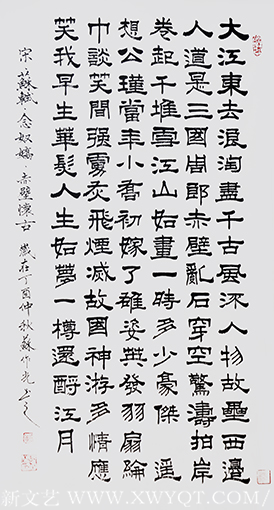 大江東去浪淘盡千古風流人物故壘西邊
人道是三國周郎赤壁亂石穿空驚濤拍岸
卷起千堆雪江山如畫一時多少豪傑遥
想公瑾當年小喬初嫁了雄姿英發羽扇綸
巾談笑間强虜灰飛煙滅故國神游多情應
笑我早生華髮人生如夢一樽還酹江月
宋蘇軾念奴嬌·赤壁懷古 歲在丁酉仲秋蘇作光
新文艺 WWW.XWYQT.COM